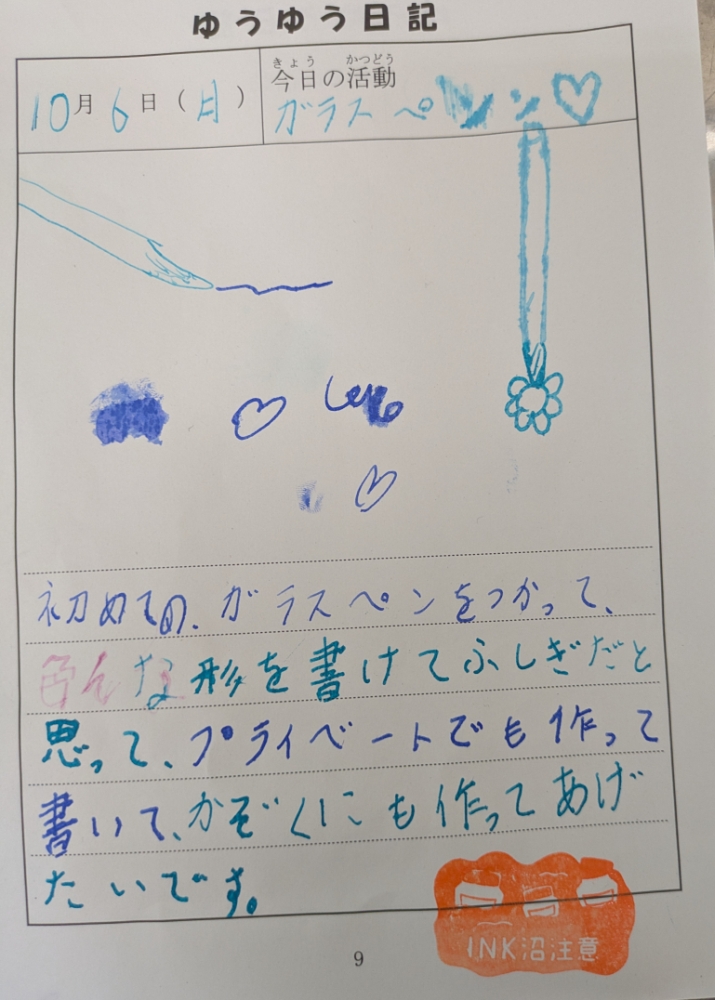 ゆうゆう日記
10月6日(月)
きょう かつどう
今日の活動
ガラスペン
初めての、ガラスペンをつかって、
色んな形を書けてふしぎだと
思って、プライベートでも作って
書いて、かぞくにも作ってあげ
たいです。
INK沼注意
9